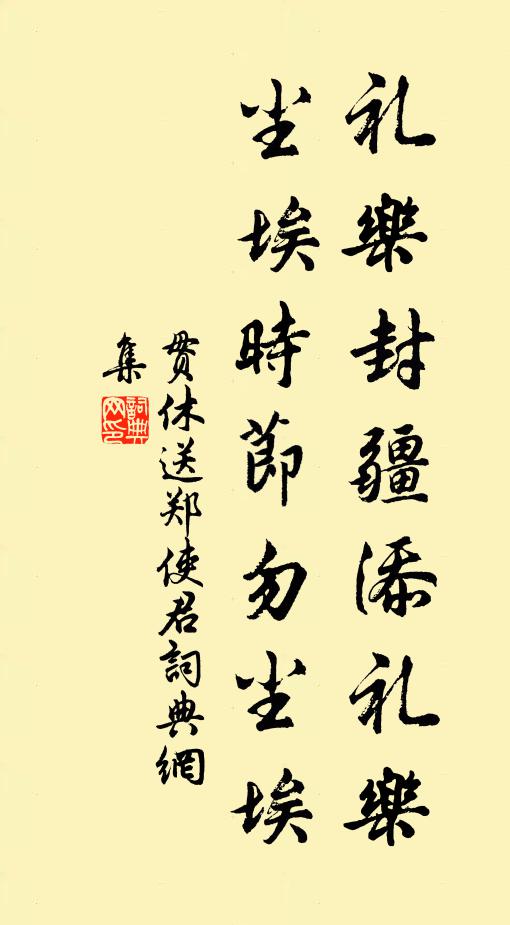 礼樂封疆添礼樂
尘埃時節勿尘埃
贯休送郑使君詞典網
集
詞典網印